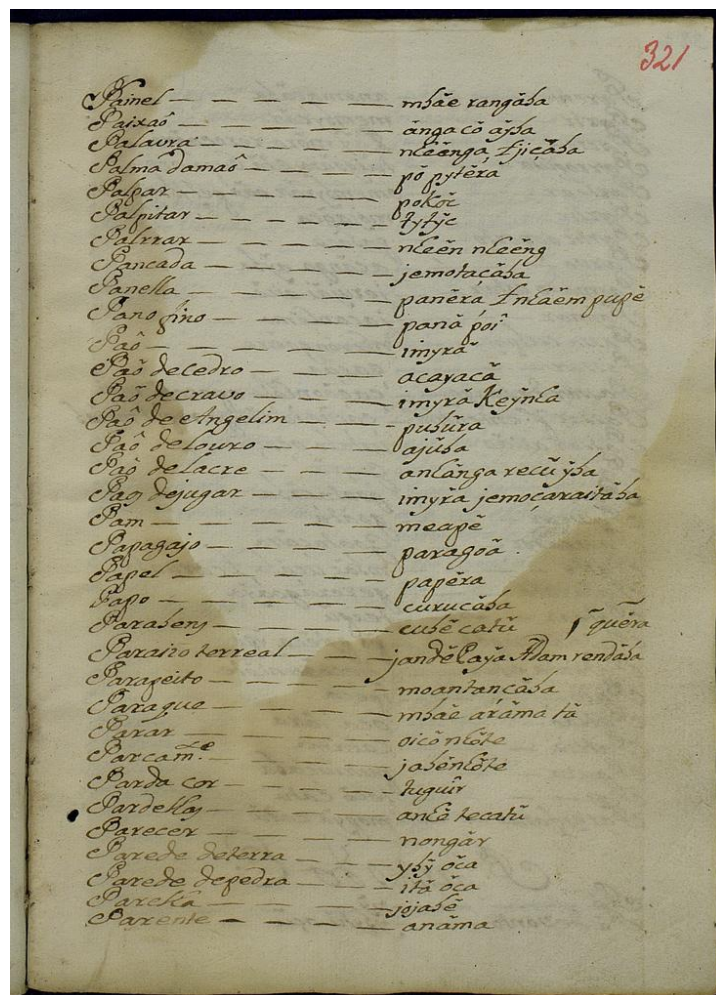 321
Painel — — — — — mbäe rangäba
Paixaõ — — — — — ängacö aÿba
Palavra — — — — — nheënga, Ejiçäba
Palma damaõ — — — — pö pytërä
Palpar — — — — — pokoc
Palpitar — — — — — tytÿc
Palrrar — — — — — nheën nheëng
Pancada — — — — — jemotacäba
Panella — — — — — panërä, Enhaëm pupë
Pano fino — — — — — panä poî
Paô — — — — — imyrä
Paõ de cedro — — — — acayacä
Paõ de cravo — — — — imyrä Keÿnha
Paõ de Angelim — — — puhüra
Paõ de louro — — — — ajüba
Paõ de lacre — — — — anhänga recü ÿba
Paos de jugar — — — — imyrä jemoçaraitäba
Pam — — — — — meapë
Papagajo — — — — — paragoä
Papel — — — — — papëra
Papo — — — — — curucäba
Parabens — — — — — cuhë catü
Paraizo terreal — — jandë Paÿa Adam rendäba quëra
Parapeito — — — — moantancäba
Para que — — — — mbäe aräma tä
Parar — — — — — oicö nhöte
Parcam.te — — — — — jabënhöte
Parda cor — — — — — tuguîr
Pardellas — — — — — anhë tecatü
Parecer — — — — — nongär
Parede de terra — — — ybÿ öca
Parede de pedra — — — itä öca
Parelha — — — — — jojabë
Parente — — — — — anäma